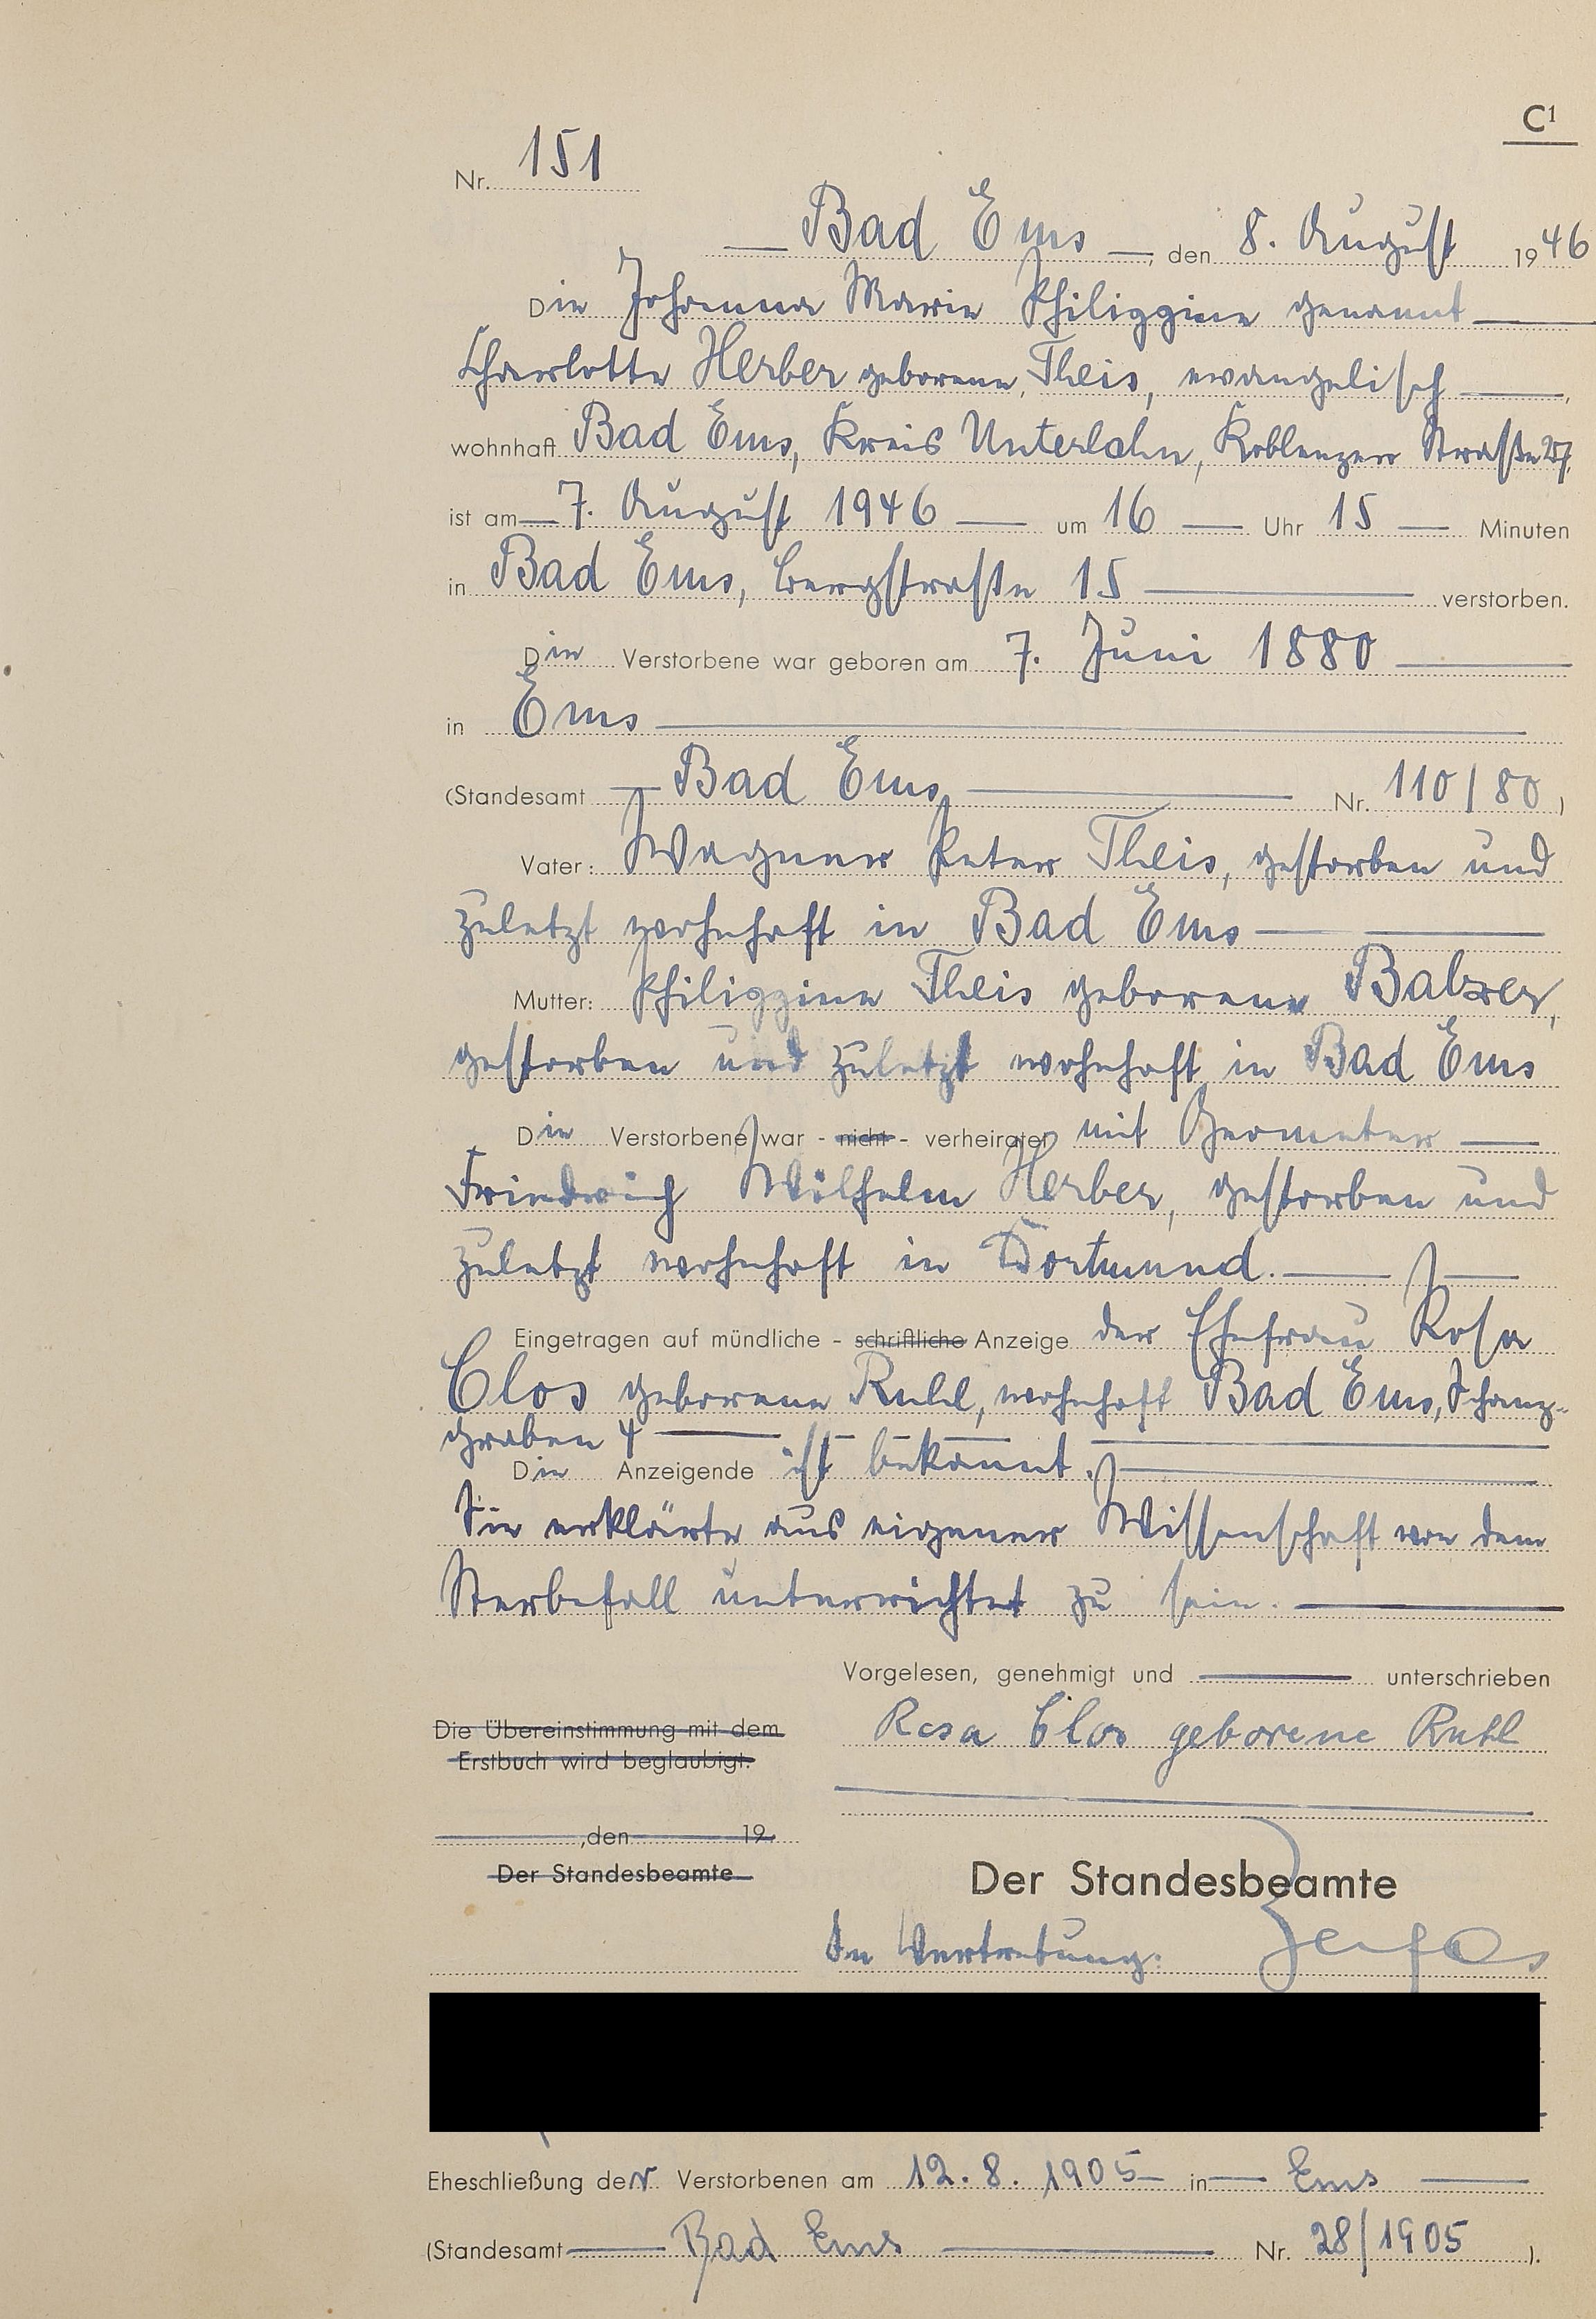 C1
Nr. 151
Bad Ems, den 8. August 1946
Die Johanna Marie Philippine genannt
Charlotte Herber geborene Theis, evangelisch,
wohnhaft Bad Ems, Kreis Unterlahn, Koblenzer Straße 27,
ist am 7. August 1946 um 16 Uhr 15 Minuten
in Bad Ems, Bergstraße 15 verstorben.
Die Verstorbene war geboren am 7. Juni 1880
in Ems
(Standesamt Bad Ems Nr. 110/80)
Vater: Wagner Peter Theis, gestorben und
zuletzt wohnhaft in Bad Ems
Mutter: Philippine Theis geborene Balzer,
gestorben und zuletzt wohnhaft in Bad Ems
Die Verstorbene war - nicht - verheiratet mit Geometer
Friedrich Wilhelm Herber, gestorben und
zuletzt wohnhaft in Dortmund.
Eingetragen auf mündliche - schriftliche Anzeige der Ehefrau Rosa
Clos geborene Ruhl, wohnhaft Bad Ems, Schanz-
graben 4
Die Anzeigende ist bekannt.
Sie erklärte aus eigener Wissenschaft von dem
Sterbefall unterrichtet zu sein.
Vorgelesen, genehmigt und unterschrieben
Rosa Clos geborene Ruhl
Die Übereinstimmung mit dem
Erstbuch wird beglaubigt.
, den 19
Der Standesbeamte
Der Standesbeamte
In Vertretung:
Eheschließung der Verstorbenen am 12.8.1905 in Ems
(Standesamt Bad Ems Nr. 28/1905).